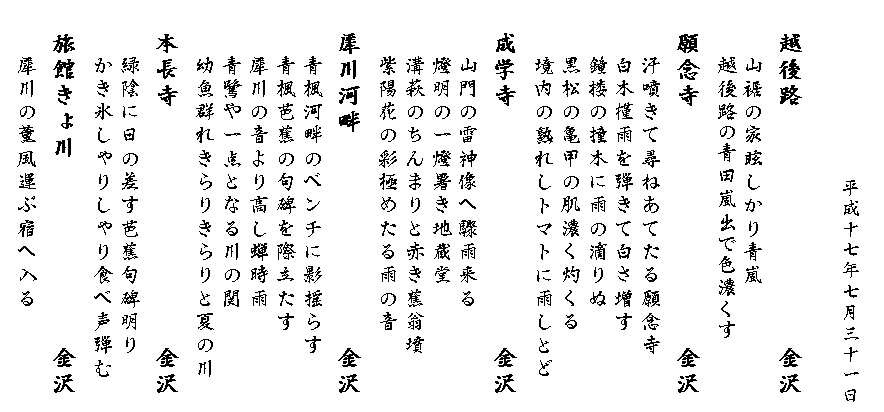 平成十七年七月三十一日
越後路 金沢
山裾の家眩しかり青嵐
越後路の青田嵐出で色濃くす
願念寺 金沢
汗噴きて尋ねあてたる願念寺
白木槿雨を弾きて白さ増す
鐘楼の撞木に雨の滴りぬ
黒松の亀甲の肌濃く灼くる
境内の熟れしトマトに雨しとど
成学寺 金沢
山門の雷神像へ驟雨来る
燈明の一燈暑き地蔵堂
溝萩のちんまりと赤き蕉翁墳
紫陽花の彩極めたる雨の音
犀川河畔 金沢
青楓河畔のベンチに影揺らす
青楓芭蕉の句碑を際立たす
犀川の音より高し蝉時雨
青鷺や一点となる川の閨
幼魚群れきらりきらりと夏の川
本長寺 金沢
緑陰に日の差す芭蕉句碑明り
かき氷しやりしやり食べ声弾む
旅館きよ川 金沢
犀川の薫風運ぶ宿へ入る